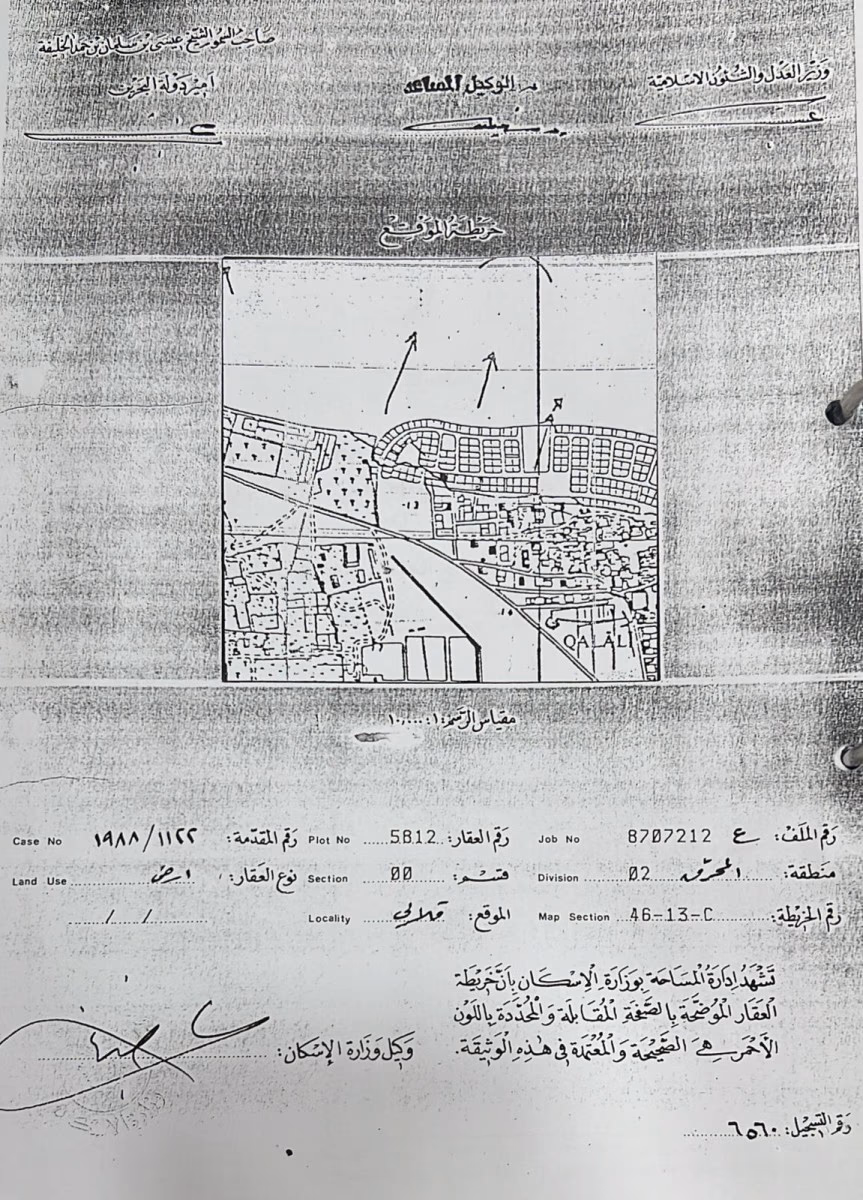 صاحب السمو الشيخ عيسى بن سلمان بن حمد الخليفة
أمير دولة البحرين
الوكيل المساعد
وزير العدل والشئون الاسلامية
خريطة الموقع
-13
QALALI
مقياس الرسم: ١:١٠,٠٠٠
رقم الملف: ع 8707212 Job No
رقم العقار: 5812 Plot No
رقم المقدمة: ١٩٨٨/١١٢٢ Case No
منطقة: المحرق 02 Division
قسم: 00 Section
نوع العقار: ارض Land Use
رقم الخريطة: 46-13-C Map Section
الموقع: قلالي Locality
/ /
تشهد إدارة المساحة بوزارة الإسكان بأن خريطة
العقار الموضحة بالصفحة المقابلة والمحددة باللون
الأحمر هي الصحيحة والمعتمدة في هذه الوثيقة.
وكيل وزارة الإسكان:
رقم التسجيل: ٦٥٦٠